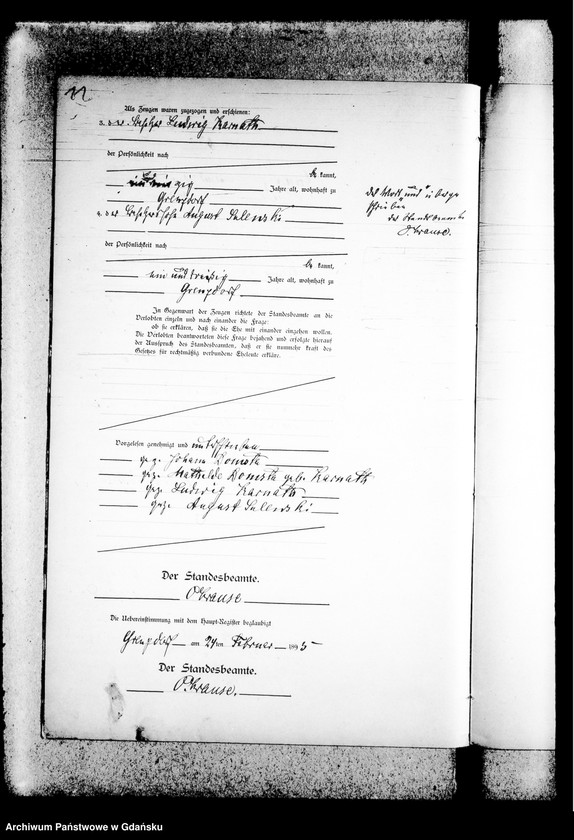 Als Zeugen waren zugezogen und erschienen:
3. der Besitzer Ludwig Karnath
der Persönlichkeit nach
be kannt,
zig Jahre alt, wohnhaft zu
4. der Besitzersohn August Salewski
der Persönlichkeit nach
be kannt,
ein und dreißig Jahre alt, wohnhaft zu
In Gegenwart der Zeugen richtete der Standesbeamte an die
Verlobten einzeln und nach einander die Frage:
ob sie erklären, daß sie die Ehe mit einander eingehen wollen.
Die Verlobten beantworteten diese Frage bejahend und erfolgte hierauf
der Ausspruch des Standesbeamten, daß er sie nunmehr kraft des
Gesetzes für rechtmäßig verbundene Eheleute erkläre.
Vorgelesen genehmigt und unterschrieben
gez. Johann Domsta
gez. Mathilde Domsta geb. Karnath
gez. Ludwig Karnath
gez. August Salewski
Der Standesbeamte.
O Krause
Die Uebereinstimmung mit dem Haupt-Register beglaubigt
am 24ten Februar 1895
Der Standesbeamte.
O. Krause.
das Wort „und“ überge
schrieben
der Standesbeamte
O. Krause.
Archiwum Państwowe w Gdańsku